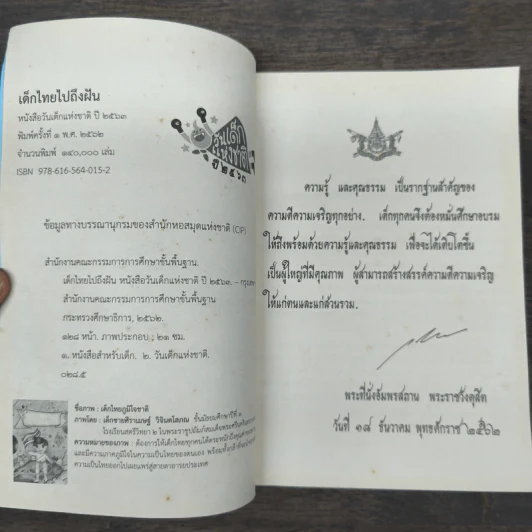 เด็กไทยไปถึงฝัน
หนังสือวันเด็กแห่งชาติ ปี ๒๕๖๓
พิมพ์ครั้งที่ ๑ พ.ศ. ๒๕๖๒
จำนวนพิมพ์ ๑๔๐,๐๐๐ เล่ม
ISBN 978-616-564-015-2
วันเด็ก
แห่งชาติ
ปี ๒๕๖๓
ข้อมูลทางบรรณานุกรมของสำนักหอสมุดแห่งชาติ (CIP)
สำนักงานคณะกรรมการการศึกษาขั้นพื้นฐาน.
เด็กไทยไปถึงฝัน หนังสือวันเด็กแห่งชาติ ปี ๒๕๖๓. –
สำนักงานคณะกรรมการการศึกษาขั้นพื้นฐาน
กระทรวงศึกษาธิการ, ๒๕๖๒.
๑๒๘ หน้า. ภาพประกอบ ; ๒๑ ซม.
๑. หนังสือสำหรับเด็ก. ๒. วันเด็กแห่งชาติ.
๐๒๘.๕
ชื่อภาพ : เด็กไทยภูมิใจชาติ
ภาพโดย : เด็กชายศิราเมษฐ์ วิจินตโสภณ ชั้นมัธยมศึกษาปีที่ ๑
โรงเรียนสตรีวิทยา ๒ ในพระราชูปถัมภ์
ความหมายของภาพ : ต้องการให้เด็กไทยทุกคนได้ตระหนักถึง
และมีความภาคภูมิใจในความเป็นไทยของตนเอง
ความเป็นไทยออกไปเผยแพร่สู่สายตาอารยประเทศ
ความรู้ และคุณธรรม เป็นรากฐานสำคัญของ
ความดีความเจริญทุกอย่าง. เด็กทุกคนจึงต้องหมั่นศึกษาอบรม
ให้ถึงพร้อมด้วยความรู้และคุณธรรม เพื่อจะได้เติบโตขึ้น
เป็นผู้ใหญ่ที่มีคุณภาพ ผู้สามารถสร้างสรรค์ความดีความเจริญ
ให้แก่ตนและแก่ส่วนรวม.
พระที่นั่งอัมพรสถาน พระราชวังดุสิต
วันที่ ๑๘ ธันวาคม พุทธศักราช ๒๕๖๒